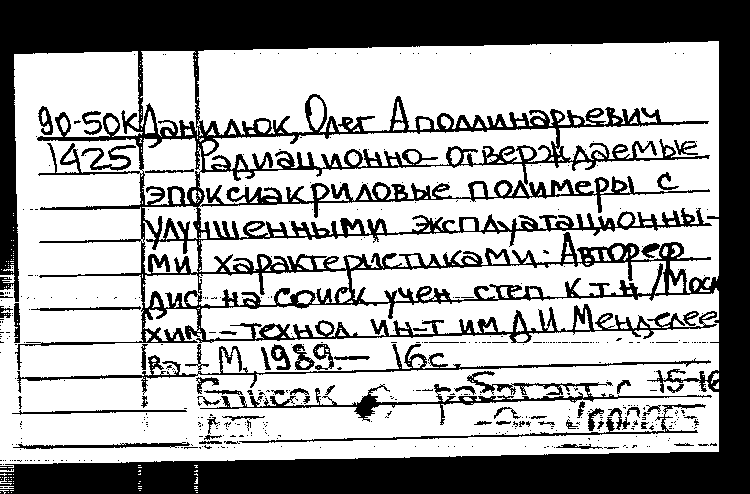 90-50к Данилюк, Олег Аполлинарьевич
1425 Радиационно-отверждаемые
эпоксиакриловые полимеры с
улучшенными эксплуатационны-
ми характеристиками: Автореф
дис. на соиск учен степ к.т.н /Моск
хим.-технол. ин-т им Д.И. Менделее-
ва.- М, 1989.- 16с.
Список работ авт.: с 15-16